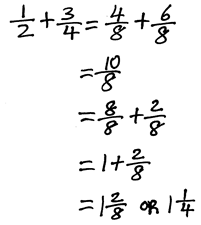 1/2 + 3/4 = 4/8 + 6/8
= 10/8
= 8/8 + 2/8
= 1 + 2/8
= 1 2/8 OR 1 1/4